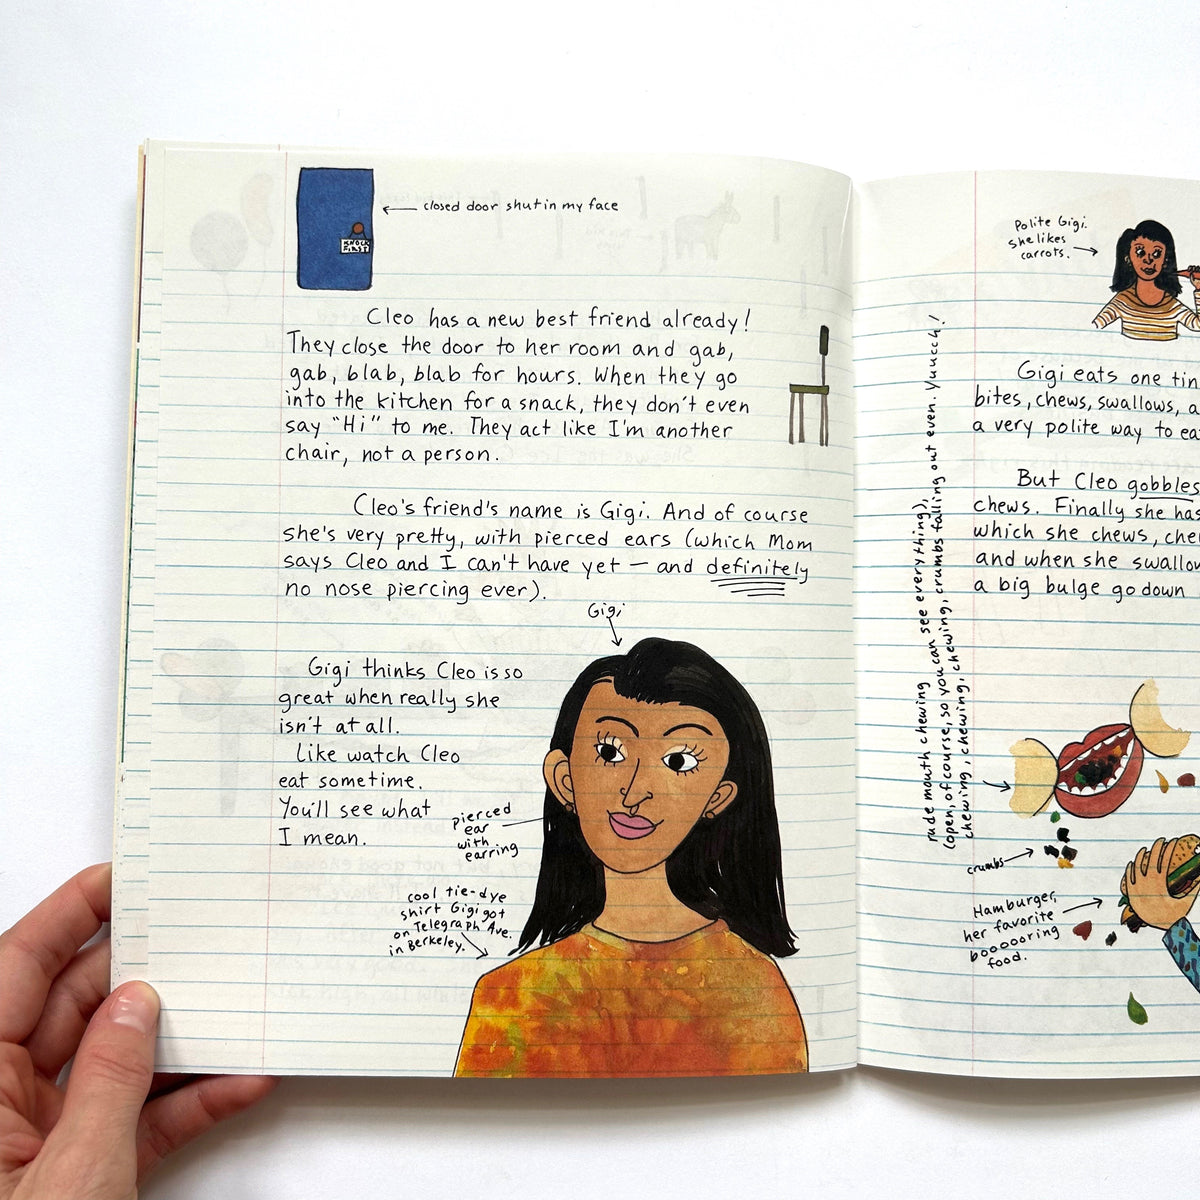 closed door shut in my face
KNOCK
FIRST
Cleo has a new best friend already!
They close the door to her room and gab,
gab, blab, blab for hours. When they go
into the kitchen for a snack, they don't even
say "Hi" to me. They act like I'm another
chair, not a person.
Cleo's friend's name is Gigi. And of course
she's very pretty, with pierced ears (which Mom
says Cleo and I can't have yet — and definitely
no nose piercing ever).
Gigi
Gigi thinks Cleo is so
great when really she
isn't at all.
Like watch Cleo
eat sometime.
You'll see what
I mean.
pierced
ear
with
earring
cool tie-dye
shirt Gigi got
on Telegraph Ave.
in Berkeley.
Polite Gigi.
She likes
carrots.
Gigi eats one tin
bites, chews, swallows, a
a very polite way to ea
But Cleo gobbles
chews. Finally she has
which she chews, che
and when she swallow
a big bulge go down
rude mouth chewing
(open, of course, so you can see everything),
chewing, chewing, chewing, chewing, crumbs falling out even. Yuucch!
crumbs
Hamburger,
her favorite
boooooring
food.